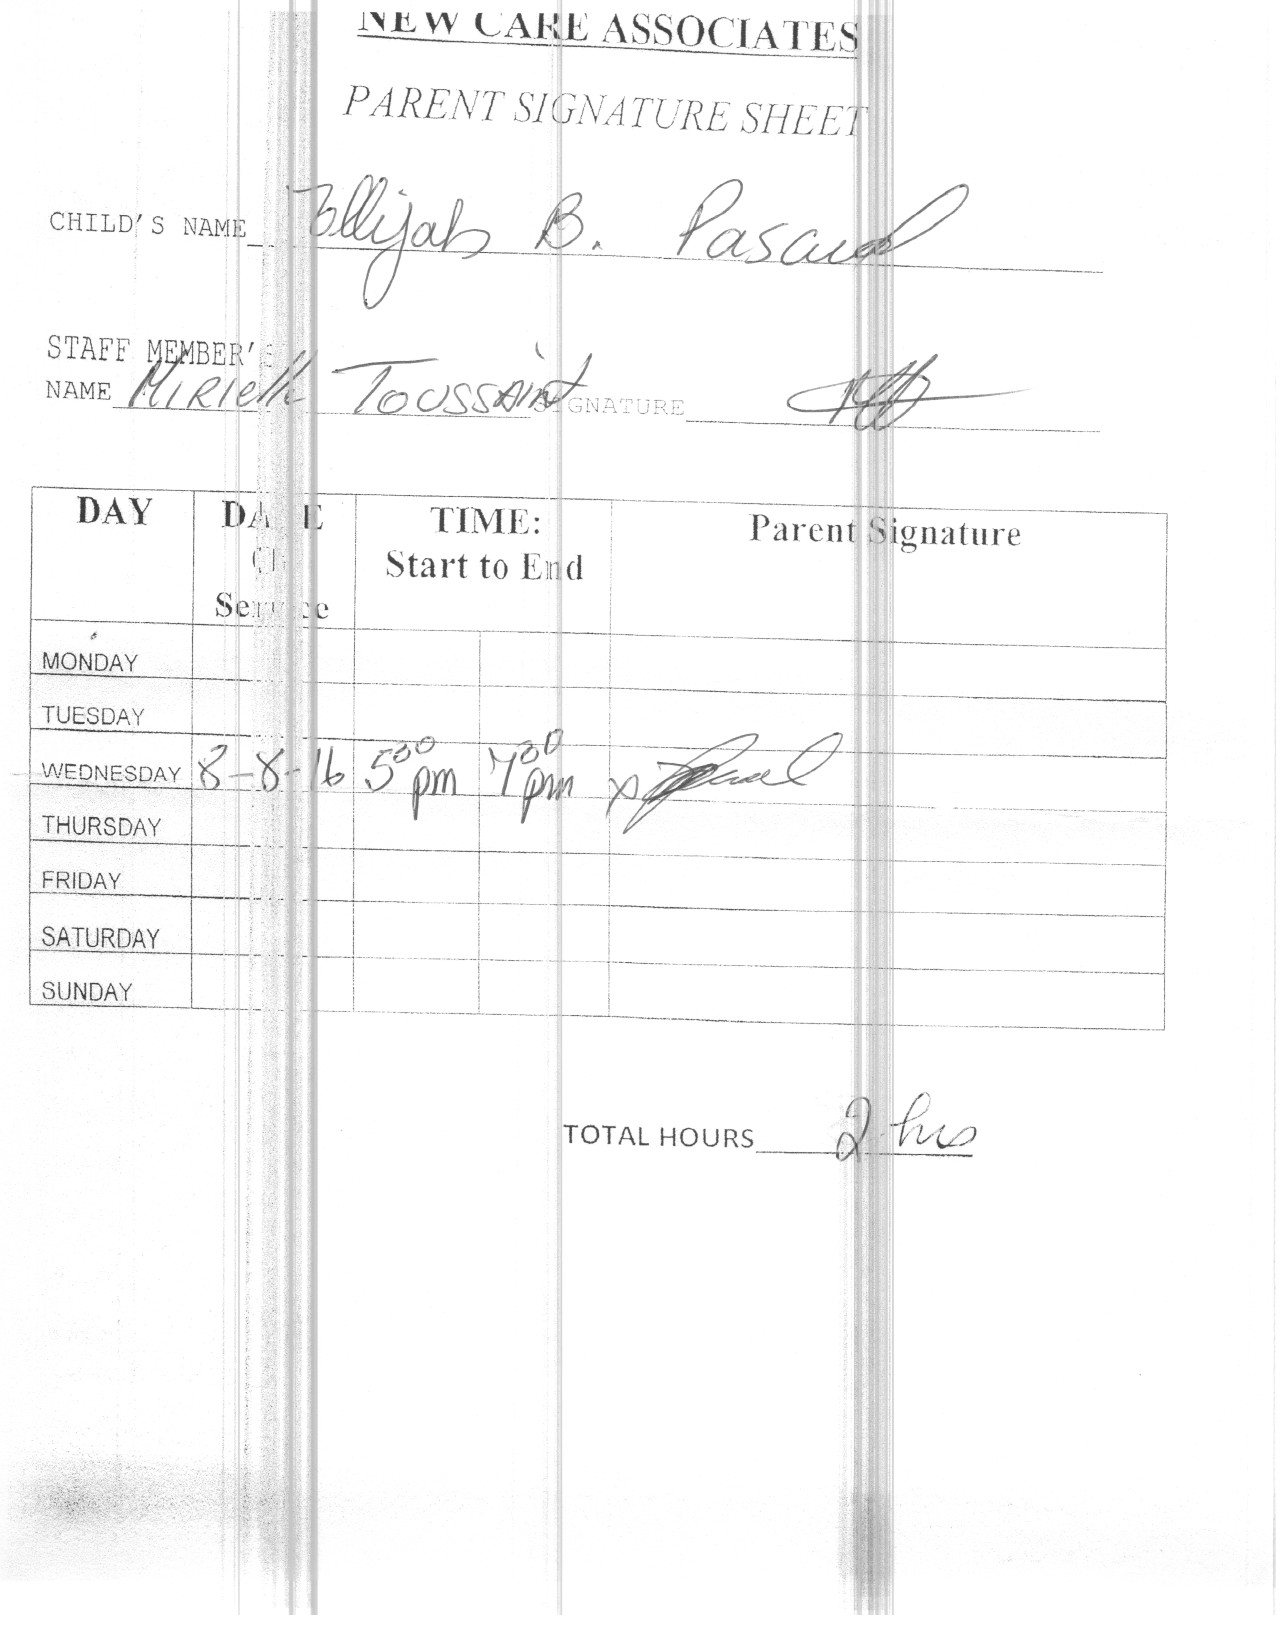 NEW CARE ASSOCIATES
PARENT SIGNATURE SHEET
CHILD'S NAME B. Pascual
STAFF MEMBER'S
NAME Mirielle Toussaint SIGNATURE
DAY DATE TIME: Parent Signature
Of Start to End
Service
MONDAY
TUESDAY
WEDNESDAY 8-8-16 5:00 pm 7:00 pm x
THURSDAY
FRIDAY
SATURDAY
SUNDAY
TOTAL HOURS 2 hrs